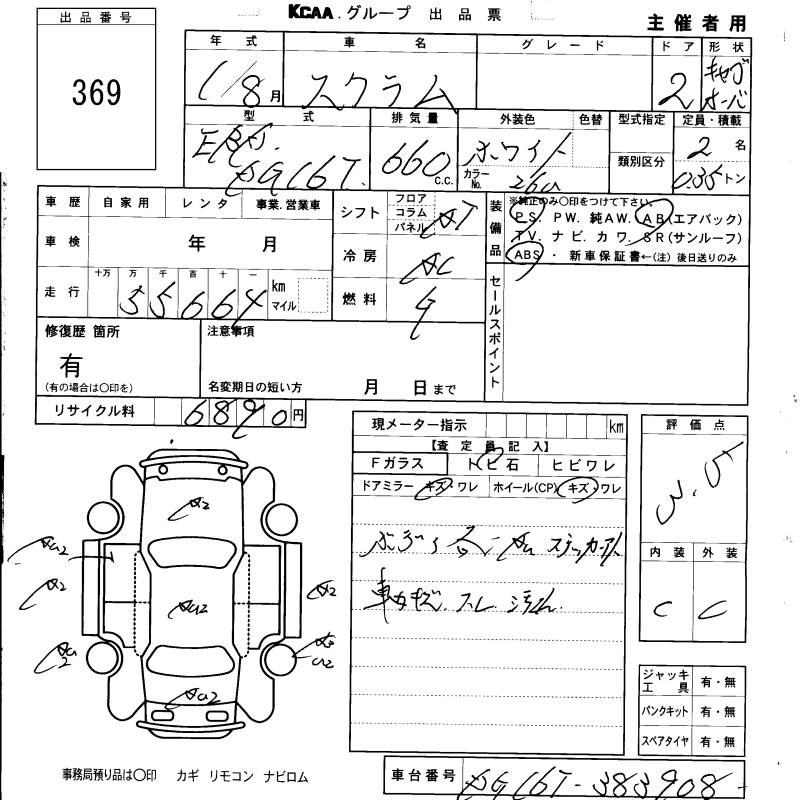 KCAA.グループ 出品票
主催者用
出品番号
369
年式 車名 グレード ドア 形状
1/8月 スクラム 2 キャブオーバ
型式 排気量 外装色 色替 型式指定 定員・積載
660 c.c. ホワイト 2名
カラーNo. 26U 類別区分 0.35トン
車歴 自家用 レンタ 事業.営業車
シフト フロア コラム パネル AT
装備品 ※純正のみ〇印をつけて下さい。
PS. PW. 純AW. AB(エアバック)
TV. ナビ. カワ. SR(サンルーフ)
ABS・新車保証書←(注)後日送りのみ
車検 年 月
冷房 AC
走行 十万 万 千 百 十 一
55664 km マイル
燃料 G
セールスポイント
修復歴 箇所
有
(有の場合は〇印を)
注意事項
名変期日の短い方 月 日まで
リサイクル料 6890円
現メーター指示 km
【査定員記入】
Fガラス トビ石 ヒビワレ
ドアミラー キズ・ワレ ホイール(CP) キズ・ワレ
ステッカー
車内キズ.スレ.汚れ.
評価点
3.5
内装 外装
C C
A2
AU2
A2
AU2
A2
AU2
AU2
ジャッキ工具 有・無
パンクキット 有・無
スペアタイヤ 有・無
事務局預り品は〇印 カギ リモコン ナビロム
車台番号 DG16T-383908-